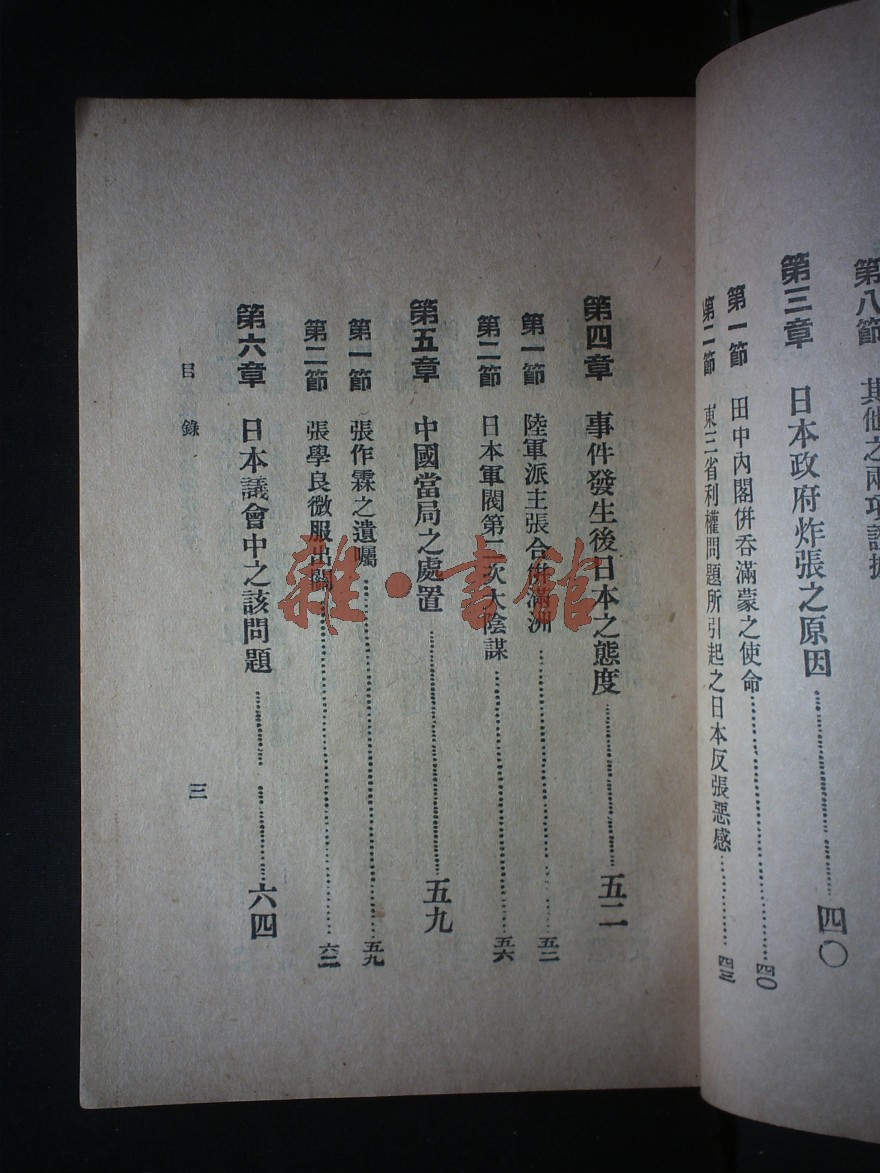 第八節　其他之兩項證據
第三章　日本政府炸張之原因……四〇
第一節　田中內閣併吞滿蒙之使命……四〇
第二節　東三省利權問題所引起之日本反張惡感……四三
第四章　事件發生後日本之態度……五二
第一節　陸軍派主張合併滿洲……五二
第二節　日本軍閥第二次大陰謀……五六
第五章　中國當局之處置……五九
第一節　張作霖之遺囑……五九
第二節　張學良微服出關……六二
第六章　日本議會中之該問題……六四
目錄　三
雜·書館